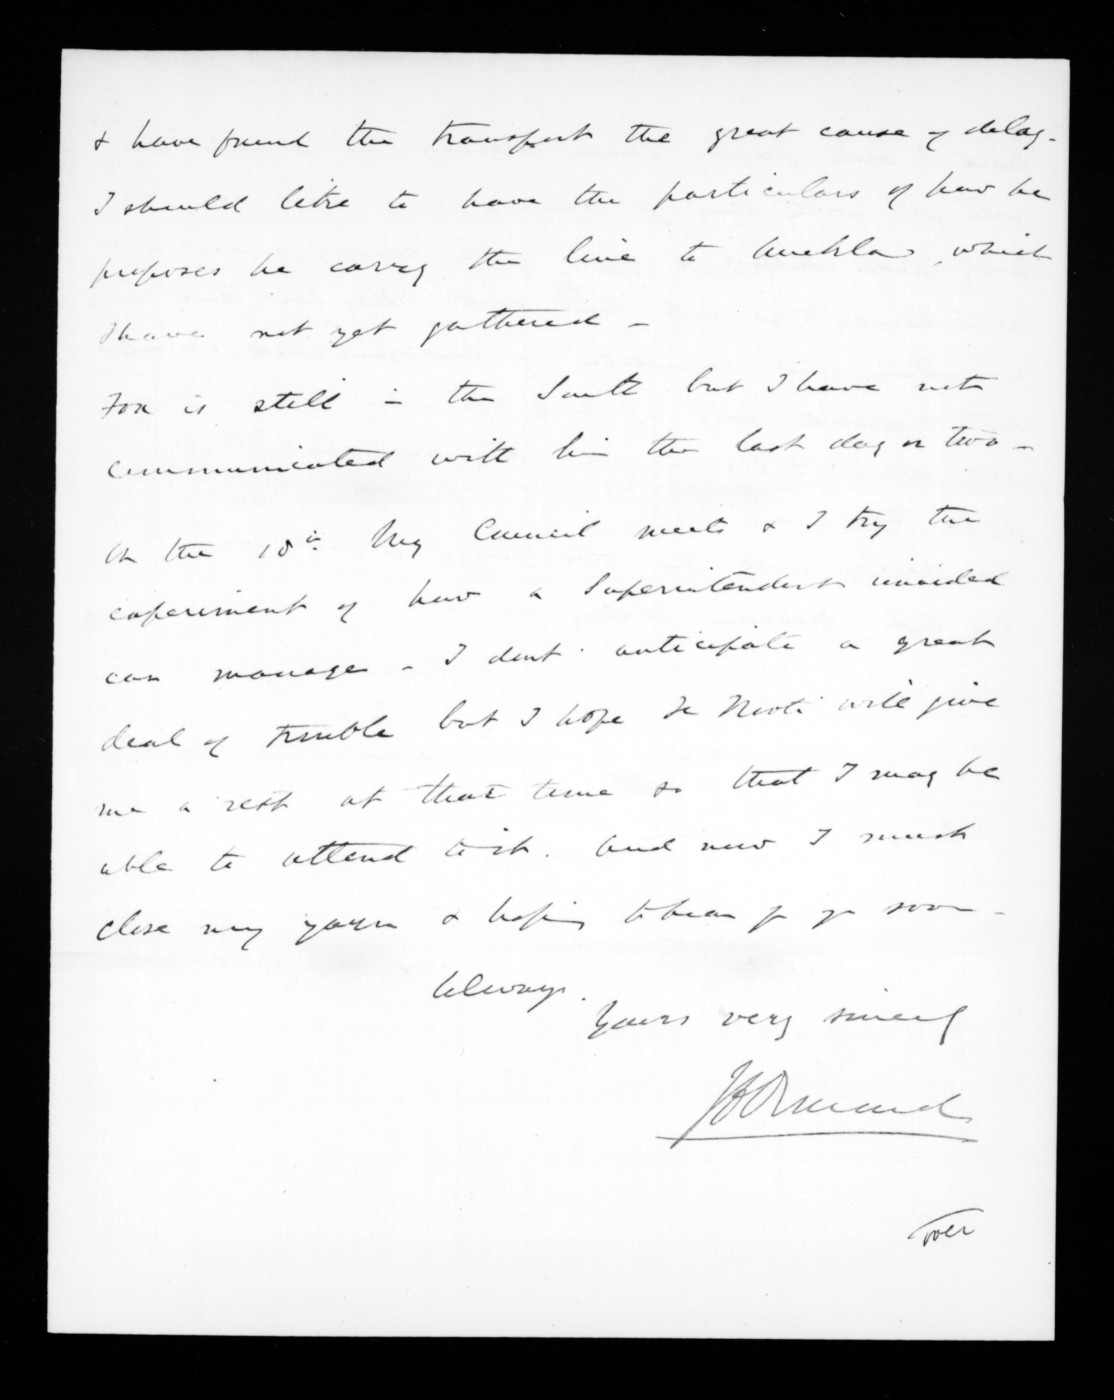 & have found the transport the great cause of delay -
I should like to have the particulars of how he
proposes he carry the line to Auckland, which
I have not yet gathered -
Fox is still in the South but I have not
communicated with him the last day or two -
On the 10th. My Council meets & I try the
experiment of how a Superintendent unaided
can manage - I dont anticipate a great
deal of trouble but I hope Te Kooti will give
me a rest at that time so that I may be
able to attend to it. And now I must
close my yarn & hoping to hear fr yr soon -
Always.
Yours very sincerely
JDOrmond
over